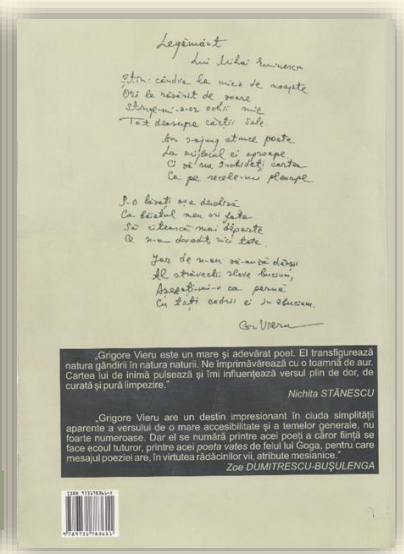 Legământ
Lui Mihai Eminescu
Știu: cândva la miez de noapte
Ori la răsărit de soare
Stinge-mi-s-or ochii mie
Tot deasupra cărții sale.
Am s-ajung atunce poate
La mijlocul ei aproape
Ci să nu închideți cartea
Ca pe recele-mi pleoape.
S-o lăsați așa deschisă
Ca băiatul meu ori fata
Să citească mai departe
Ce n-a dovedit nici tata.
Iar de n-au s-auză dânșii
Al străvechii slove bucium,
Așezați-mi-o ca pernă
Cu toți codrii ei în zbucium.
Gr Vieru
„Grigore Vieru este un mare și adevărat poet. El transfigurează
natura gândirii în natura naturii. Ne împrimăvărează cu o toamnă de aur.
Cartea lui de inimă pulsează și îmi influențează versul plin de dor, de
curată și pură limpezire."
Nichita STĂNESCU
„Grigore Vieru are un destin impresionant în ciuda simplității
aparente a versului de o mare accesibilitate și a temelor generale, nu
foarte numeroase. Dar el se numără printre acei poeți a căror ființă se
face ecoul tuturor, printre acei poeta vates de felul lui Goga, pentru care
mesajul poeziei are, în virtutea rădăcinilor vii, atribute mesianice."
Zoe DUMITRESCU-BUȘULENGA